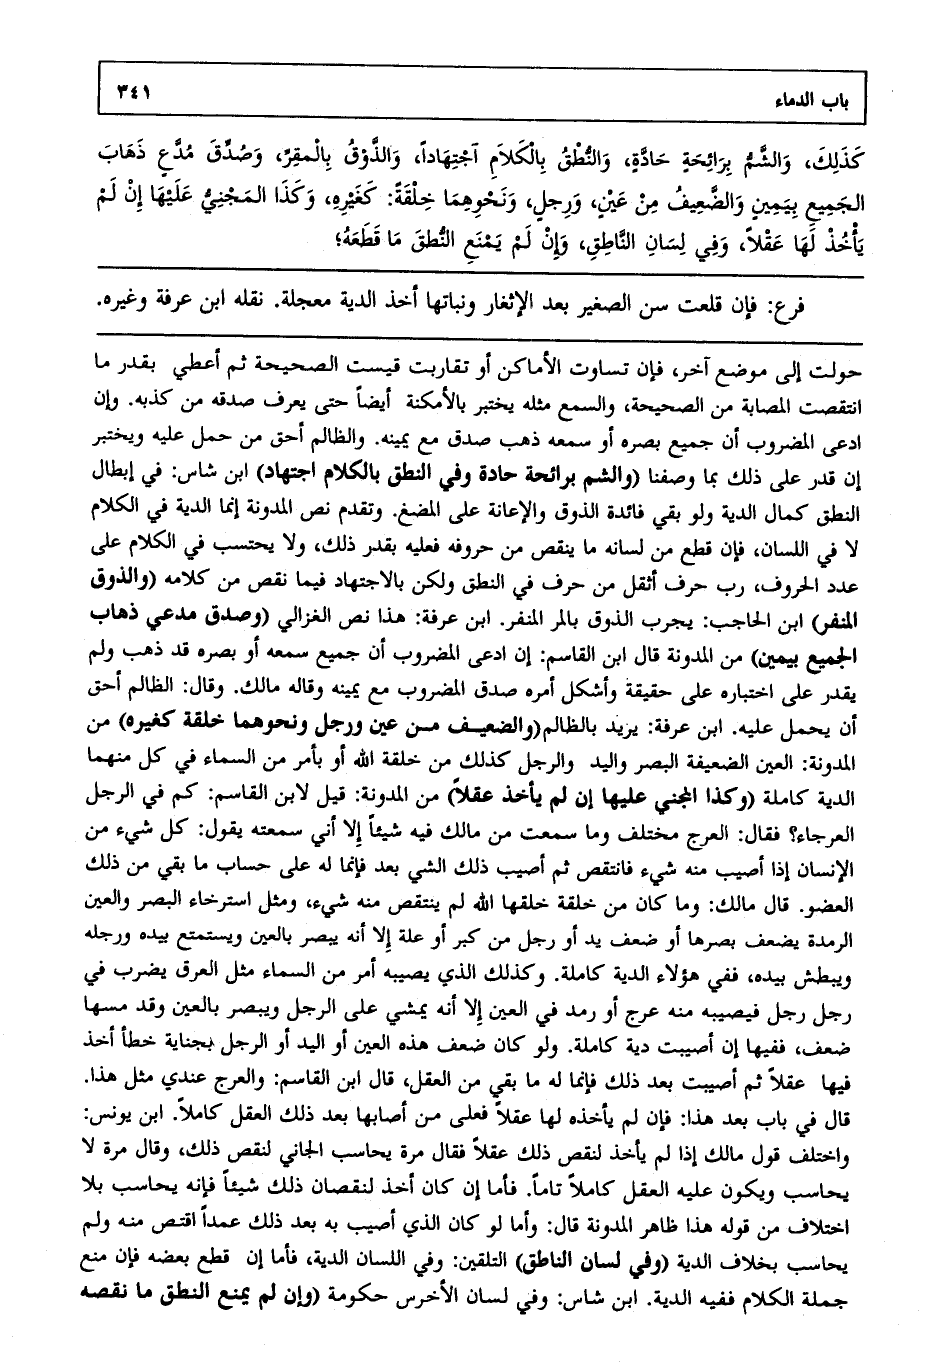 باب الدماء ٣٤١
كَذَلِكَ، وَالشَّمُّ بِرَائِحَةٍ حَادَّةٍ، وَالنُّطْقُ بِالْكَلَامِ آجْتِهَاداً، وَالذَّوْقُ بِالْمقِرِّ، وَصُدِّقَ مُدَّعٍ ذَهَابَ
الجَمِيعِ بِيَمِينٍ وَالضَّعِيفُ مِنْ عَيْنٍ، وَرِجلٍ، وَنَحْوِهِمَا خِلْقَةً: كَغَيْرِهِ، وَكَذَا المَجْنِيُّ عَلَيْهَا إِنْ لَمْ
يَأْخُذْ لَهَا عَقْلاً، وَفِي لِسَانِ النَّاطِقِ، وَإِنْ لَمْ يَمْنَعِ النُّطْقَ مَا قَطَعَهُ؛
فرع: فإن قلعت سن الصغير بعد الإثغار ونباتها أخذ الدية معجلة. نقله ابن عرفة وغيره.
حولت إلى موضع آخر، فإن تساوت الأماكن أو تقاربت قيست الصحيحة ثم أعطي بقدر ما
انتقصت المصابة من الصحيحة، والسمع مثله يختبر بالأمكنة أيضاً حتى يعرف صدقه من كذبه. وإن
ادعى المضروب أن جميع بصره أو سمعه ذهب صدق مع يمينه. والظالم أحق من حمل عليه ويختبر
إن قدر على ذلك بما وصفنا (والشم برائحة حادة وفي النطق بالكلام اجتهاد) ابن شاس: في إبطال
النطق كمال الدية ولو بقي فائدة الذوق والإعانة على المضغ. وتقدم نص المدونة إنما الدية في الكلام
لا في اللسان، فإن قطع من لسانه ما ينقص من حروفه فعليه بقدر ذلك، ولا يحتسب في الكلام على
عدد الحروف، رب حرف أثقل من حرف في النطق ولكن بالاجتهاد فيما نقص من كلامه (والذوق
المنفر) ابن الحاجب: يجرب الذوق بالمر المنفر. ابن عرفة: هذا نص الغزالي (وصدق مدعي ذهاب
الجميع بيمين) من المدونة قال ابن القاسم: إن ادعى المضروب أن جميع سمعه أو بصره قد ذهب ولم
يقدر على اختباره على حقيقة وأشكل أمره صدق المضروب مع يمينه وقاله مالك. وقال: الظالم أحق
أن يحمل عليه. ابن عرفة: يريد بالظالم(والضعيف من عين ورجل ونحوهما خلقة كغيره) من
المدونة: العين الضعيفة البصر واليد والرجل كذلك من خلقة الله أو بأمر من السماء في كل منهما
الدية كاملة (وكذا المجني عليها إن لم يأخذ عقلاً) من المدونة: قيل لابن القاسم: كم في الرجل
العرجاء؟ فقال: العرج مختلف وما سمعت من مالك فيه شيئاً إلا أني سمعته يقول: كل شيء من
الإنسان إذا أصيب منه شيء فانتقص ثم أصيب ذلك الشي بعد فإنما له على حساب ما بقي من ذلك
العضو. قال مالك: وما كان من خلقة خلقها الله لم ينتقص منه شيء، ومثل استرخاء البصر والعين
الرمدة يضعف بصرها أو ضعف يد أو رجل من كبر أو علة إلا أنه يبصر بالعين ويستمتع بيده ورجله
ويبطش بيده، ففي هؤلاء الدية كاملة. وكذلك الذي يصيبه أمر من السماء مثل العرق يضرب في
رجل رجل فيصيبه منه عرج أو رمد في العين إلا أنه يمشي على الرجل ويبصر بالعين وقد مسها
ضعف، ففيها إن أصيبت دية كاملة. ولو كان ضعف هذه العين أو اليد أو الرجل بجناية خطأ أخذ
فيها عقلاً ثم أصيبت بعد ذلك فإنما له ما بقي من العقل، قال ابن القاسم: والعرج عندي مثل هذا.
قال في باب بعد هذا: فإن لم يأخذه لها عقلاً فعلى من أصابها بعد ذلك العقل كاملاً. ابن يونس:
واختلف قول مالك إذا لم يأخذ لنقص ذلك عقلاً فقال مرة يحاسب الجاني لنقص ذلك، وقال مرة لا
يحاسب ويكون عليه العقل كاملاً تاماً. فأما إن كان أخذ لنقصان ذلك شيئاً فإنه يحاسب بلا
اختلاف من قوله هذا ظاهر المدونة قال: وأما لو كان الذي أصيب به بعد ذلك عمداً اقتص منه ولم
يحاسب بخلاف الدية (وفي لسان الناطق) التلقين: وفي اللسان الدية، فأما إن قطع بعضه فإن منع
جملة الكلام ففيه الدية. ابن شاس: وفي لسان الأخرس حكومة (وإن لم يمنع النطق ما نقصه